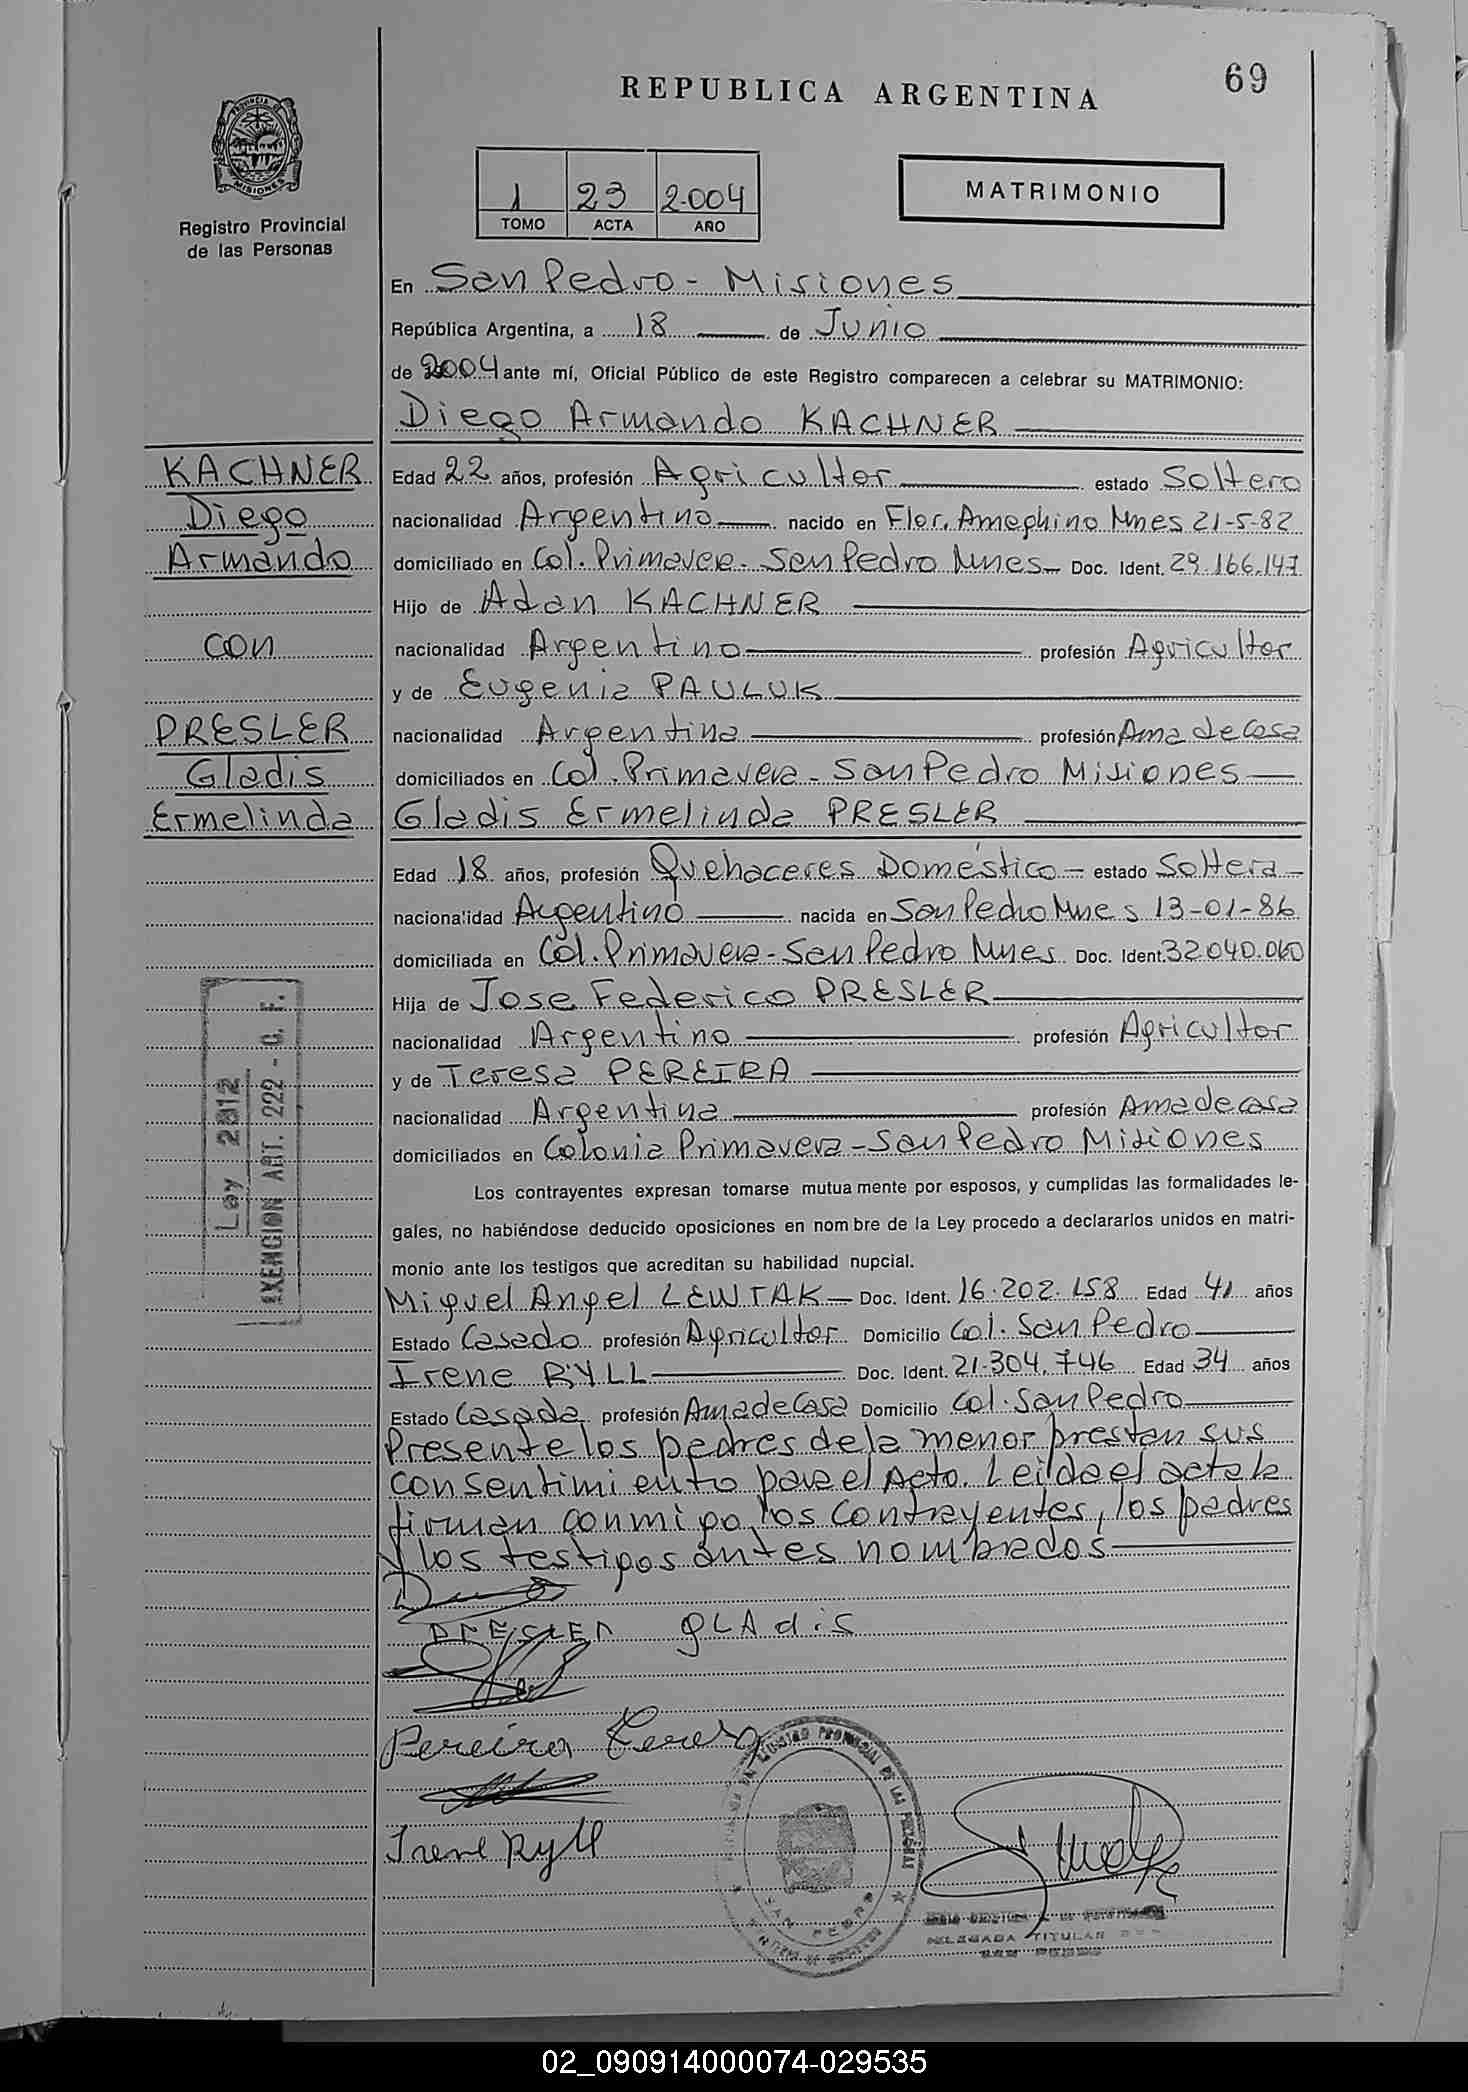 69
REPUBLICA ARGENTINA
PROVINCIA DE MISIONES
Registro Provincial
de las Personas
1 23 2.004
TOMO ACTA AÑO
MATRIMONIO
En San Pedro - Misiones
República Argentina, a 18 de Junio
de 2004 ante mí, Oficial Público de este Registro comparecen a celebrar su MATRIMONIO:
Diego Armando KACHNER
KACHNER
Diego
Armando
con
PRESLER
Gladis
Ermelinda
Edad 22 años, profesión Agricultor estado Soltero
nacionalidad Argentino nacido en Flor. Ameghino Mnes 21-5-82
domiciliado en Col. Primavera - San Pedro Mnes Doc. Ident. 29.166.147
Hijo de Adan KACHNER
nacionalidad Argentino profesión Agricultor
y de Eugenia PAULUK
nacionalidad Argentina profesión Ama de Casa
domiciliados en Col. Primavera - San Pedro Misiones
Gladis Ermelinda PRESLER
Edad 18 años, profesión Quehaceres Doméstico estado Soltera
nacionalidad Argentino nacida en San Pedro Mnes 13-01-86
domiciliada en Col. Primavera - San Pedro Mnes Doc. Ident. 32.040.060
Hija de Jose Federico PRESLER
nacionalidad Argentino profesión Agricultor
y de Teresa PEREIRA
nacionalidad Argentina profesión Ama de casa
domiciliados en Colonia Primavera - San Pedro Misiones
Ley 2812
EXENCION ART. 222 - C. F.
Los contrayentes expresan tomarse mutuamente por esposos, y cumplidas las formalidades le-
gales, no habiéndose deducido oposiciones en nombre de la Ley procedo a declararlos unidos en matri-
monio ante los testigos que acreditan su habilidad nupcial.
Miguel Angel LEWTAK Doc. Ident. 16.202.158 Edad 41 años
Estado Casado profesión Agricultor Domicilio Col. San Pedro
Irene RYLL Doc. Ident. 21.304.746 Edad 34 años
Estado Casada profesión Ama de Casa Domicilio Col. San Pedro
Presente los padres de la menor prestan sus
consentimiento para el Acto. Leida el acta la
firman conmigo, los contrayentes, los padres
y los testigos antes nombrados
PRESLER gLAdis
Pereira Teresa
Irene Ryll
PROVINCIAL DE LAS PERSONAS
SAN PEDRO
DELEGADA TITULAR
SAN PEDRO
02_090914000074-029535